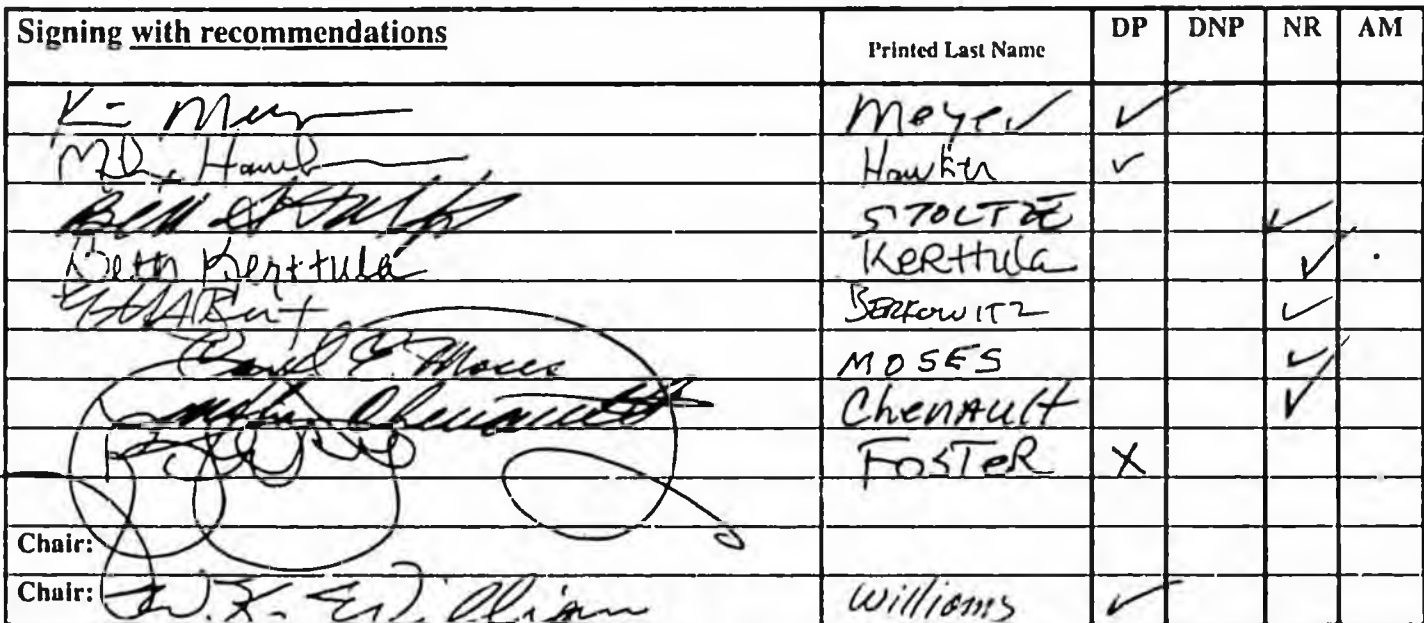 Signing with recommendations Printed Last Name DP DNP NR AM
K- Meyer Meyer ✓
Hawker ✓
STOLTZE ✓
Beth Kerttula KeRttula ✓
BERKOWITZ ✓
Carl E. Moses MOSES ✓
Chenault ChenAult ✓
FosTeR X
Chair:
Chair: W.K. Williams Williams ✓